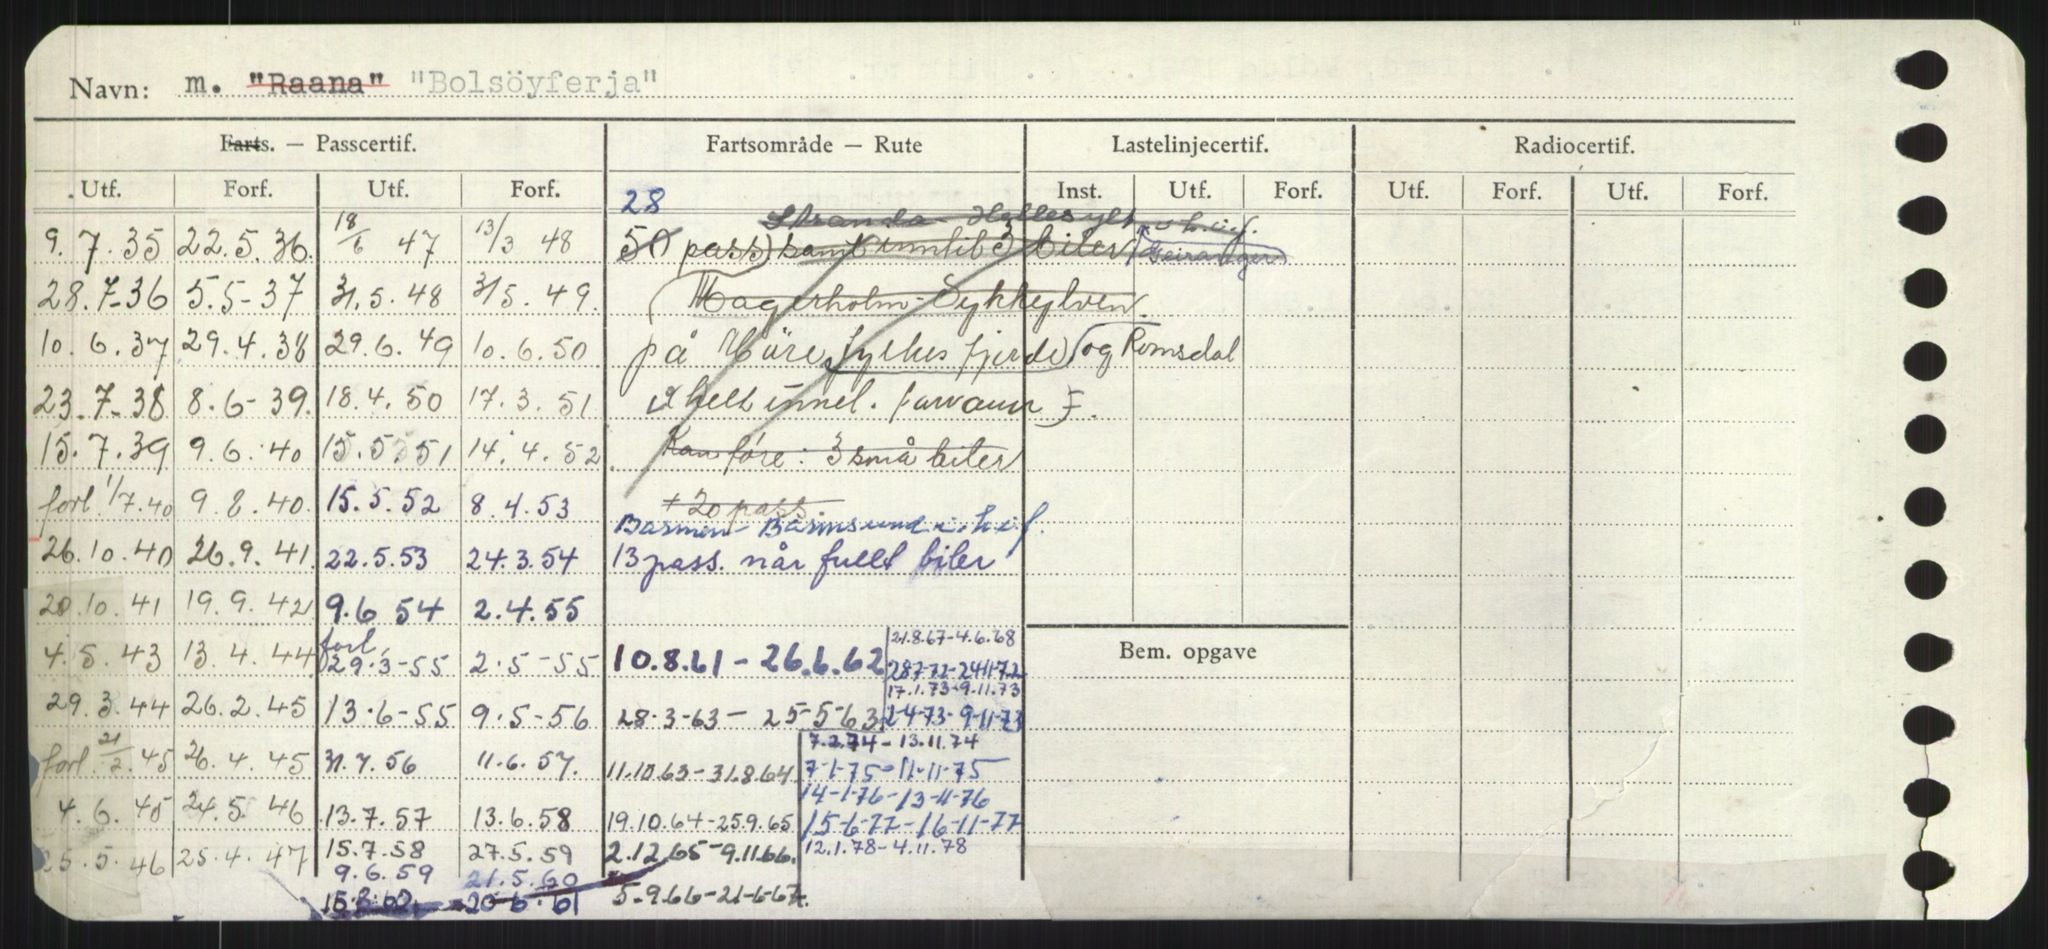 Navn: m. "Raana" "Bolsöyferja"
Farts. — Passcertif. Fartsområde — Rute Lastelinjecertif. Radiocertif.
Utf. Forf. Utf. Forf. Inst. Utf. Forf. Utf. Forf. Utf. Forf.
28
Stranda - Hellesylt
9.7.35 22.5.36. 18/6 47 13/3 48 50 pass) samt inntil 3 biler Geiranger
28.7-36 5.5-37 31.5.48 31/5.49. Magerholm - Sykkylven
10.6.37 29.4.38 29.6.49 10.6.50 på Möre fylkes fjorde og Romsdal
23.7-38 8.6-39. 18.4.50 17.3.51 i helt innel. farvann
15.7.39 9.6.40 15.5.51 14.4.52 Kan före: 3 små biler
forl. 1/7.40 9.8.40. 15.5.52 8.4.53 + 20 pass
Basmen - Barmsund i h.i.f.
26.10.40 26.9.41. 22.5.53 24.3.54 13 pass. når fullt biler
20.10.41 19.9.42 9.6 54 2.4.55
forl. 21.8.67-4.6.68
4.5.43 13.4.44 29.3-55 2.5-55 10.8.61 - 26.6.62 28.7-72-24.11-72
Bem. opgave
17.1.73-9.11.73
29.3.44 26.2.45 13.6-55 9.5-56 28-3-63 - 25-5-63 2-4-73-9-11-73
7.2.74 - 13.11.74
forl. 21/2.45 26.4.45 31.7.56 11.6.57. 11.10.63-31.8.64 7-1-75-11-11-75
14-1-76-13-11-76
4.6.45 24.5.46 13.7.57 13.6.58 19.10.64-25.9.65 15-6-77-16-11-77
25.5.46 25.4.47 15.7.58 27.5.59 2.12.65-9.11.66. 12.1.78-4.11.78
9.6.59 21.5.60
15.8.60. 20.6.61 5.9.66-21-6-67.